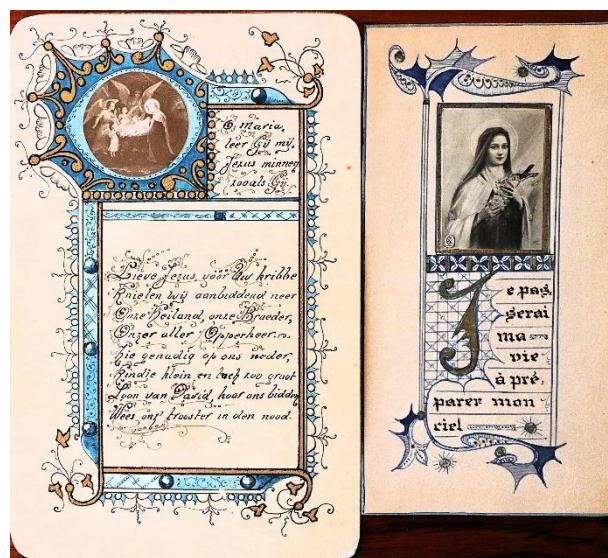 O Maria,
leer Gij mij,
Jezus minnen
zooals Gij.
Lieve Jezus, voor Uw kribbe
Knielen wij aanbiddend neer
Onze Heiland, onze Broeder,
Onzer aller Opperheer.
Zie genadig op ons neder,
Kindje klein en toch zoo groot
Zoon van David, hoor ons bidden
Wees ons' trooster in den nood.
Je pas
serai
ma
vie
à pré-
parer mon
ciel